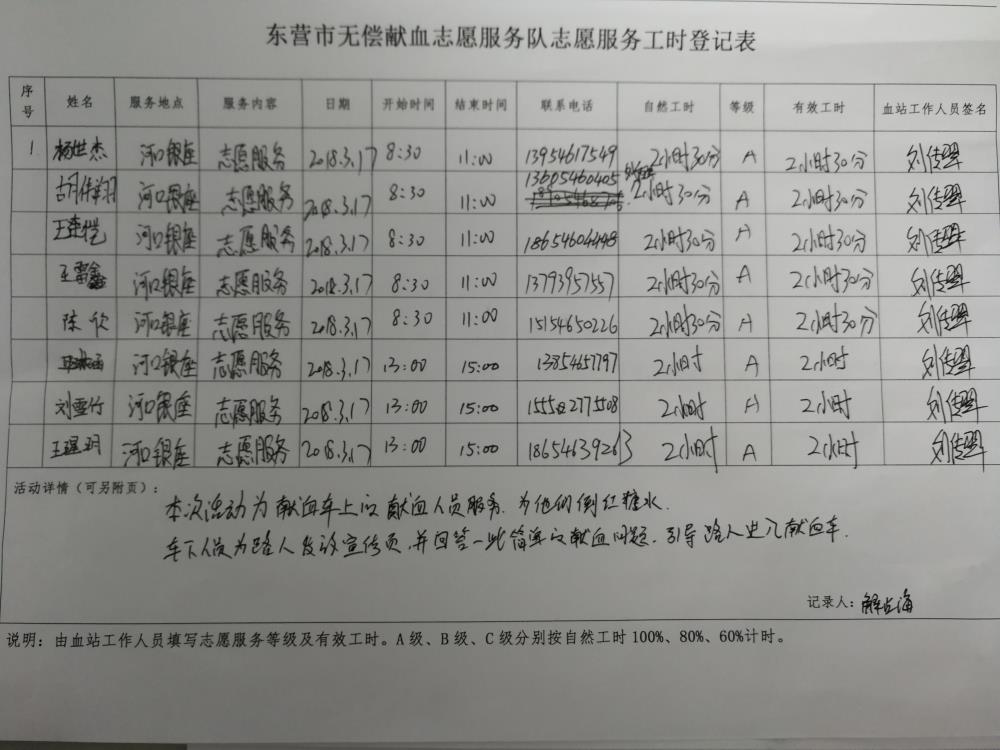 东营市无偿献血志愿服务队志愿服务工时登记表
序号 姓名 服务地点 服务内容 日期 开始时间 结束时间 联系电话 自然工时 等级 有效工时 血站工作人员签名
1 杨世杰 河口银座 志愿服务 2018.3.17 8:30 11:00 13954617549 2小时30分 A 2小时30分 刘传翠
胡伟翔 河口银座 志愿服务 2018.3.17 8:30 11:00 13605460405 2小时30分 A 2小时30分 刘传翠
王奎恺 河口银座 志愿服务 2018.3.17 8:30 11:00 18654604448 2小时30分 A 2小时30分 刘传翠
王 河口银座 志愿服务 2018.3.17 8:30 11:00 13793957557 2小时30分 A 2小时30分 刘传翠
陈欣 河口银座 志愿服务 2018.3.17 8:30 11:00 15154650226 2小时30分 A 2小时30分 刘传翠
河口银座 志愿服务 2018.3.17 13:00 15:00 13854657797 2小时 A 2小时 刘传翠
刘雪竹 河口银座 志愿服务 2018.3.17 13:00 15:00 15552775508 2小时 A 2小时 刘传翠
王瑶玥 河口银座 志愿服务 2018.3.17 13:00 15:00 18654639263 2小时 A 2小时 刘传翠
活动详情（可另附页）：
本次活动为献血车上应献血人员服务.为他们倒红糖水.
车下人员为路人发放宣传页,并回答一些简单的献血问题.引导路人进入献血车.
记录人：解占海
说明：由血站工作人员填写志愿服务等级及有效工时。A 级、B 级、C 级分别按自然工时 100%、80%、60%计时。